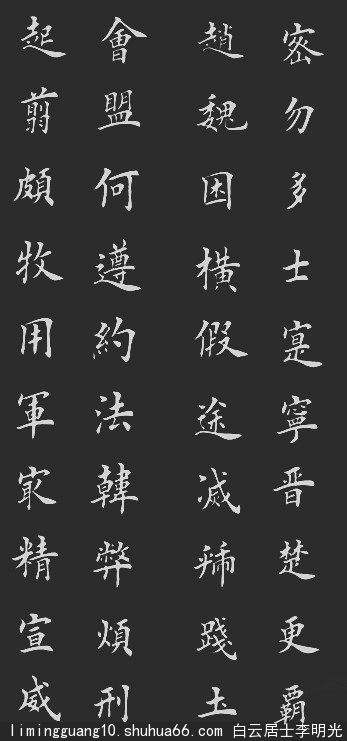 密勿多士寔寧晋楚更霸
趙魏困橫假途滅虢踐土
會盟何遵約法韓弊煩刑
起翦頗牧用軍㝡精宣威
limingguang10.shuhua66.com 白云居士李明光